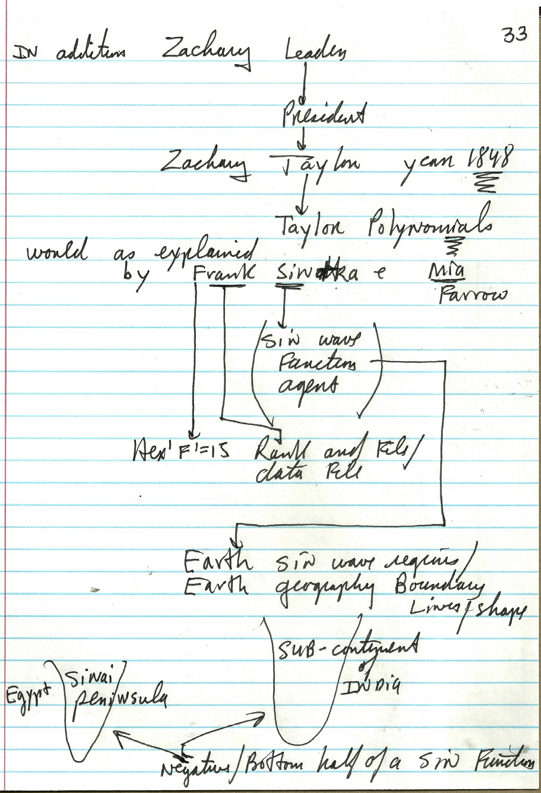 33
IN addition Zachary Leader
President
Zachary Taylor year 1848
Taylor Polynomials
would as explained
by Frank Sinatra e Mia
Farrow
(Sin wave
Function
agent)
Hex 'F'=15 Rank and File/
data File
Earth Sin wave regions/
Earth geography Boundary
Lines/shape
SUB-continent
of
INDIA
Egypt Sinai
peninsula
Negative/Bottom half of a Sin Function